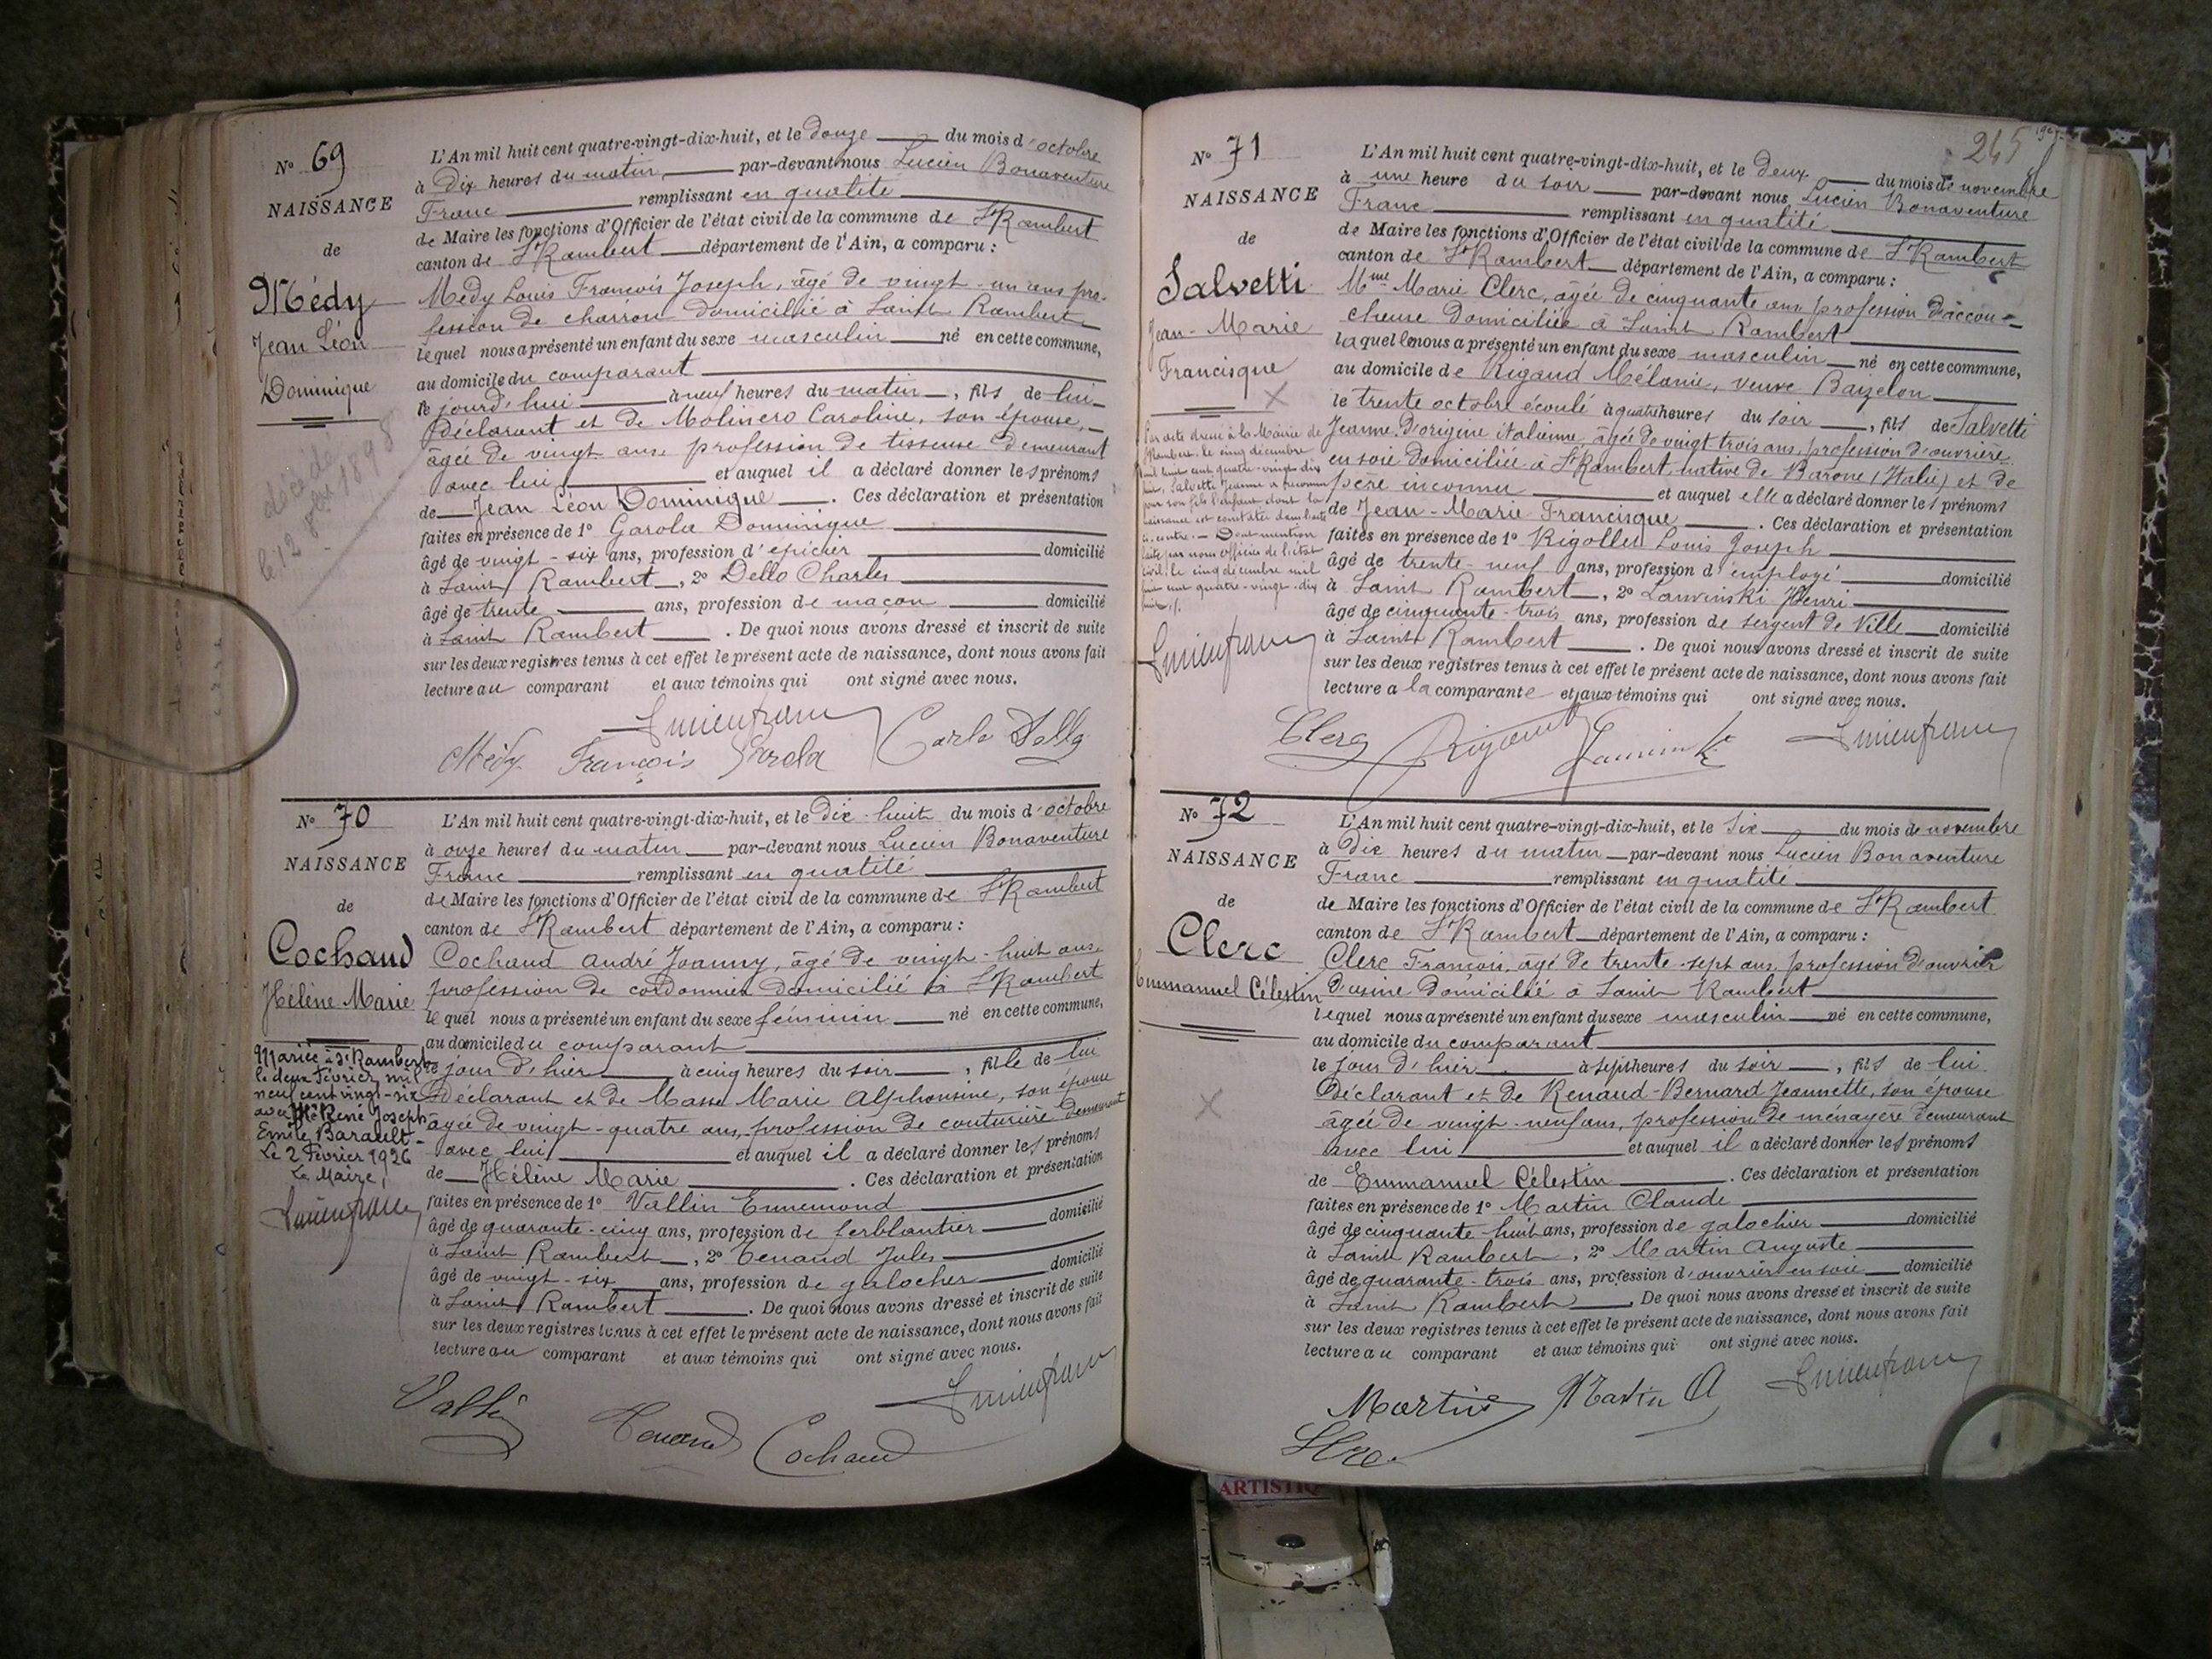 N° 69
NAISSANCE
de
Médy
Jean Léon
Dominique
décédé
le 12 8bre 1898
L'An mil huit cent quatre-vingt-dix-huit, et le douze du mois d'octobre
à Dix heures du matin, par-devant nous Lucien Bonaventure
Franc remplissant en qualité
de Maire les fonctions d'Officier de l'état civil de la commune de St Rambert
canton de St Rambert département de l'Ain, a comparu :
Médy Louis François Joseph, âgé de vingt-un ans pro-
fession de charron domicilié à Saint Rambert
lequel nous a présenté un enfant du sexe masculin né en cette commune,
au domicile du comparant
le jourd'hui à neuf heures du matin, fils de lui
Déclarant et de Molinero Caroline, son épouse,
âgée de vingt ans profession de tisseuse demeurant
avec lui et auquel il a déclaré donner les prénoms
de Jean Léon Dominique. Ces déclaration et présentation
faites en présence de 1° Garola Dominique
âgé de vingt-six ans, profession d'épicier domicilié
à Saint Rambert, 2° Dello Charles
âgé de trente ans, profession de maçon domicilié
à Saint Rambert. De quoi nous avons dressé et inscrit de suite
sur les deux registres tenus à cet effet le présent acte de naissance, dont nous avons fait
lecture au comparant et aux témoins qui ont signé avec nous.
Lucien franc
Médy François Garola Carlo Dello
N° 70
NAISSANCE
de
Cochaud
Hélène Marie
Mariée à St Rambert
le deux Février mil
neuf cent vingt-six
avec Mr René Joseph
Emile Barault
Le 2 Février 1926
Le Maire,
Lucien franc
L'An mil huit cent quatre-vingt-dix-huit, et le Dix-huit du mois d'octobre
à onze heures du matin par-devant nous Lucien Bonaventure
Franc remplissant en qualité
de Maire les fonctions d'Officier de l'état civil de la commune de St Rambert
canton de St Rambert département de l'Ain, a comparu :
Cochaud André Joanny, âgé de vingt-huit ans
profession de cordonnier domicilié à St Rambert
lequel nous a présenté un enfant du sexe féminin né en cette commune,
au domicile du comparant
le jour d'hier à cinq heures du soir, fille de lui
Déclarant et de Masse Marie Alphonsine, son épouse
âgée de vingt-quatre ans, profession de couturière demeurant
avec lui et auquel il a déclaré donner les prénoms
de Hélène Marie. Ces déclaration et présentation
faites en présence de 1° Vallin Ennemond
âgé de quarante-cinq ans, profession de ferblantier domicilié
à Saint Rambert, 2° Tenand Jules
âgé de vingt-six ans, profession de galocher domicilié
à Saint Rambert. De quoi nous avons dressé et inscrit de suite
sur les deux registres tenus à cet effet le présent acte de naissance, dont nous avons fait
lecture au comparant et aux témoins qui ont signé avec nous.
Lucien franc
Vallin Tenand Cochaud
245
N° 71
NAISSANCE
de
Salvetti
Jean-Marie
Francisque
Par acte dressé à la Mairie de
St Rambert, le cinq décembre
mil huit cent quatre-vingt-dix
huit, Salvetti Jeanne a reconnu
pour son fils l'enfant dont la
naissance est constatée dans l'acte
ci-contre. — Dont mention
faite par nous officier de l'état
civil le cinq décembre mil
huit cent quatre-vingt-dix
huit./.
Lucien franc
L'An mil huit cent quatre-vingt-dix-huit, et le Deux du mois de novembre
à une heure du soir par-devant nous Lucien Bonaventure
Franc remplissant en qualité
de Maire les fonctions d'Officier de l'état civil de la commune de St Rambert
canton de St Rambert département de l'Ain, a comparu :
Mme Marie Clerc, âgée de cinquante ans profession d'accou-
cheuse domiciliée à Saint Rambert
laquelle nous a présenté un enfant du sexe masculin né en cette commune,
au domicile de Rigaud Mélanie, veuve Baizelon
le trente octobre écoulé à quatre heures du soir, fils de Salvetti
Jeanne. D'origine italienne, âgée de vingt trois ans, profession d'ouvrière
en soie domiciliée à St Rambert, native de Barone (Italie) et de
père inconnu et auquel elle a déclaré donner les prénoms
de Jean-Marie Francisque. Ces déclaration et présentation
faites en présence de 1° Rigollet Louis Joseph
âgé de trente-neuf ans, profession d'employé domicilié
à Saint Rambert, 2° Lawinski Henri
âgé de cinquante-trois ans, profession de sergent de Ville domicilié
à Saint Rambert. De quoi nous avons dressé et inscrit de suite
sur les deux registres tenus à cet effet le présent acte de naissance, dont nous avons fait
lecture a la comparante et aux témoins qui ont signé avec nous.
Clerc Lucien franc
N° 72
NAISSANCE
de
Clerc
Emmanuel Célestin
L'An mil huit cent quatre-vingt-dix-huit, et le Six du mois de novembre
à Dix heures du matin par-devant nous Lucien Bonaventure
Franc remplissant en qualité
de Maire les fonctions d'Officier de l'état civil de la commune de St Rambert
canton de St Rambert département de l'Ain, a comparu :
Clerc François, âgé de trente-sept ans, profession d'ouvrier
d'usine domicilié à Saint Rambert
lequel nous a présenté un enfant du sexe masculin né en cette commune,
au domicile du comparant
le jour d'hier à sept heures du soir, fils de lui
Déclarant et de Renaud-Bernard Jeannette, son épouse
âgée de vingt-neuf ans, profession de ménagère demeurant
avec lui et auquel il a déclaré donner les prénoms
de Emmanuel Célestin. Ces déclaration et présentation
faites en présence de 1° Martin Claude
âgé de cinquante-huit ans, profession de galochier domicilié
à Saint Rambert, 2° Martin Auguste
âgé de quarante-trois ans, profession d'ouvrier en soie domicilié
à Saint Rambert. De quoi nous avons dressé et inscrit de suite
sur les deux registres tenus à cet effet le présent acte de naissance, dont nous avons fait
lecture au comparant et aux témoins qui ont signé avec nous.
Martin Martin A Lucien franc
Clerc
ARTISTIQ